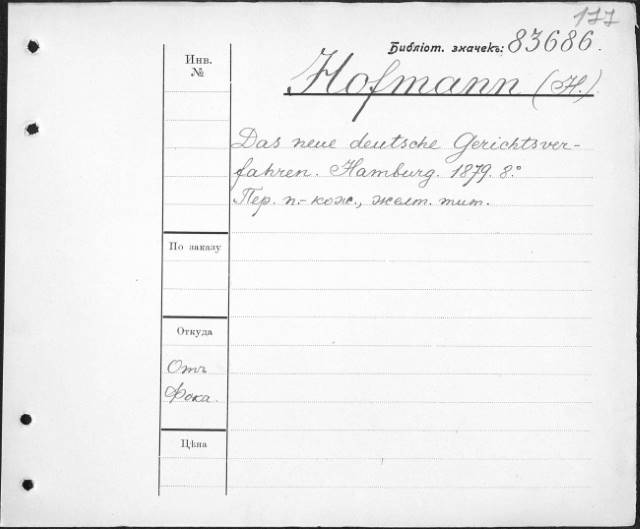 177
Библіот. значекъ: 83686.
Инв.
№
Hofmann (H.)
Das neue deutsche Gerichtsver-
fahren. Hamburg. 1879. 8.°
Пер. п.-кож., желт. тит.
По заказу
Откуда
Отъ
Фока.
Цѣна